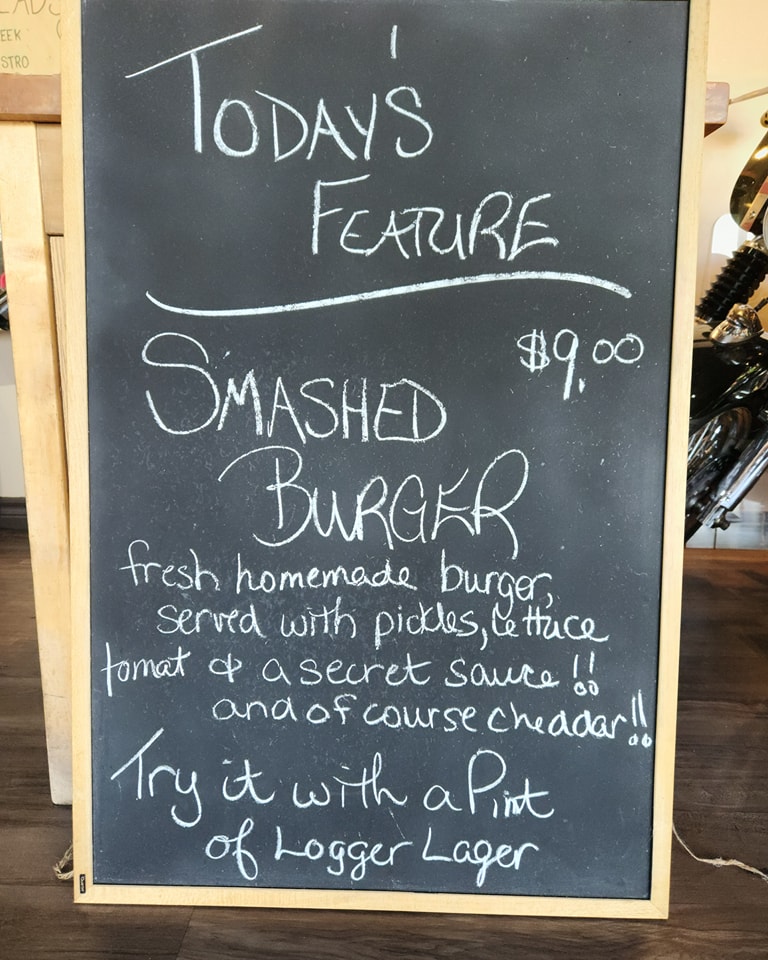 EEK
STRO
TODAY'S
FEATURE
$9.00
SMASHED
BURGER
fresh homemade burger,
served with pickles, lettuce
tomat & a secret sauce!!
and of course cheddar!!
Try it with a Pint
of Logger Lager